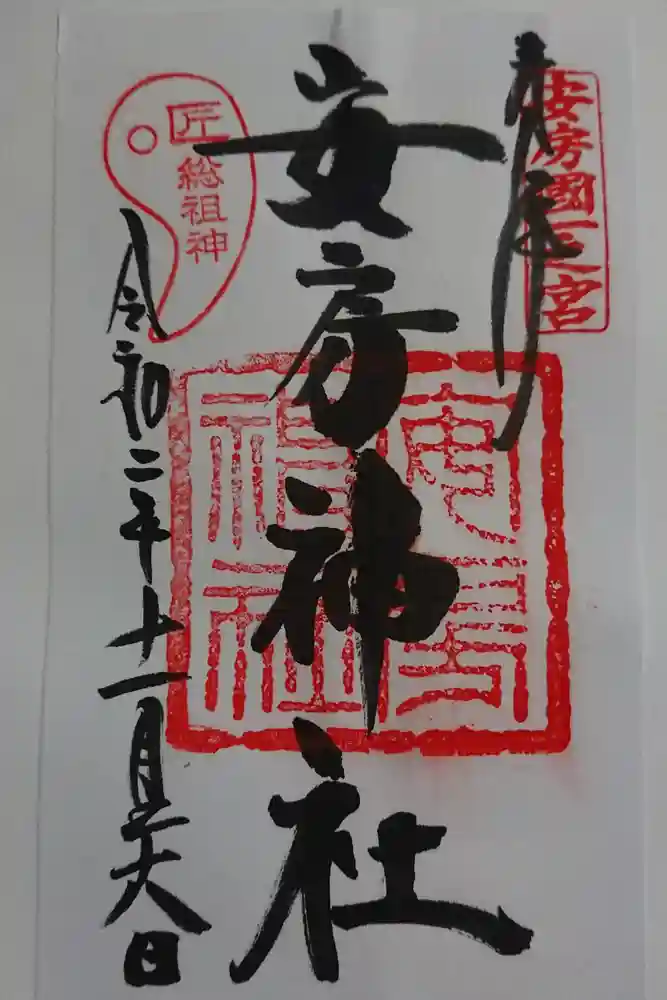 奉拝
安房國一之宮
安房神社
安房神社
匠総祖神
令和二年十一月二十六日